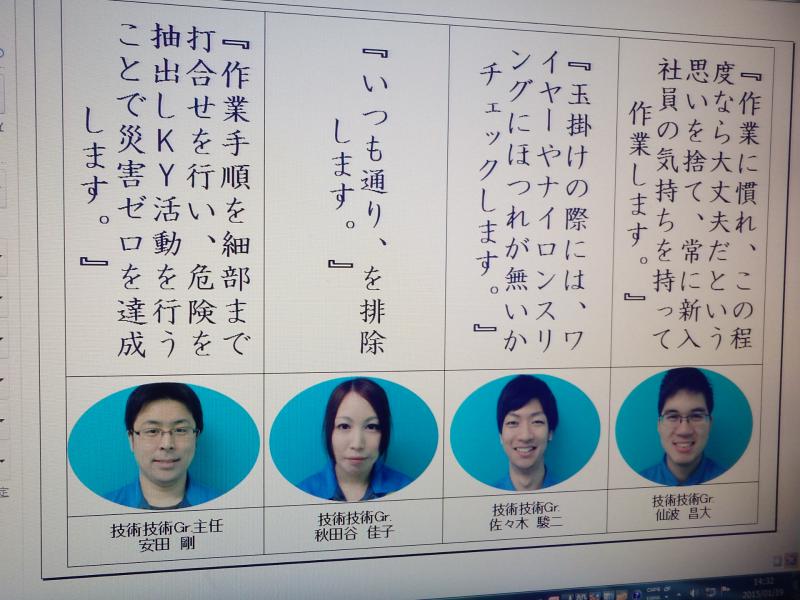 『作業に慣れ、この程
度なら大丈夫だという
思いを捨て、常に新入
社員の気持ちを持って
作業します。』
『玉掛けの際には、ワ
イヤーやナイロンスリ
ングにほつれが無いか
チェックします。』
『いつも通り、を排除
します。』
『作業手順を細部まで
打合せを行い、危険を
抽出しKY活動を行う
ことで災害ゼロを達成
します。』
技術技術Gr.主任
安田 剛
技術技術Gr.
秋田谷 佳子
技術技術Gr.
佐々木 駿二
技術技術Gr.
仙波 昌大
14:32
2015/01/19